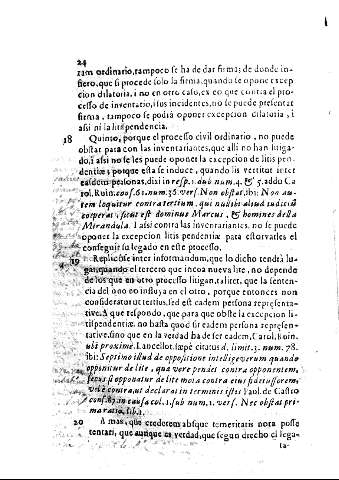 24
ram ordinario, tampoco se ha de dar firma; de donde in-
fiero, que si procede solo la firma, quando se opone excep
cion dilatoria, i no en otro caso, ex eo que contra el pro-
cesso de inventario, i sus incidentes, no se puede presentar
firma, tampoco se podrà oponer excepcion dilatoria, i
assi ni la litispendencia.
18 Quinto, porque el processo civil ordinario, no puede
obstar para con los inventariantes, que alli no han litiga-
do, i assi no se les puede oponer la excepcion de litis pen-
dentiæ; porque esta se induce, quando lis vertitur inter
easdem personas, dixi in resp. 1. dub. num. 4. & 5. addo Ca
rol. Ruin. cons. 61. num. 36. vers. Non obstat, ibi: Non au-
tem loquitur contra tertium, qui nullibi aliud iudiciũ
cœperat, sicut est dominus Marcus, & homines della
Mirandula. I assi contra las inventariantes, no se puede
oponer la excepcion litis pendentiæ para estorvarles el
conseguir su legado en este processo.
19 Replicase inter informandum, que lo dicho tendrà lu-
gar, quando el tercero que incoa nueva lite, no depende
de los que en otro processo litigan, taliter, que la senten-
cia del uno no influya en el otro, porque entonces non
consideratur ut tertius, sed est eadem persona representa-
tive. A que respondo, que para que obste la excepcion li-
tispendentiæ, no basta quod sit eadem persona represen-
tative, sino que en la verdad ha de ser eadem, Carol. Ruin.
ubi proximè. Lancellot. sæpè citatus d. limit. 3. num. 78.
ibi: Septimo illud de oppositione intelligeverum quando
opponitur de lite, que vere pendet contra opponentem,
secus si opponatur de lite mota contra eius fideiussorem,
vt de contraut declarat in terminis istis Paul. de Castro
cons. 87. in causa col. 1. sub num. 1. vers. Nec obstat pri-
ma ratio, lib. 1.
20 A mas, que crederem absque temeritatis nota posse
tentari, que aunque es verdad, que segun drecho el lega-
ta-